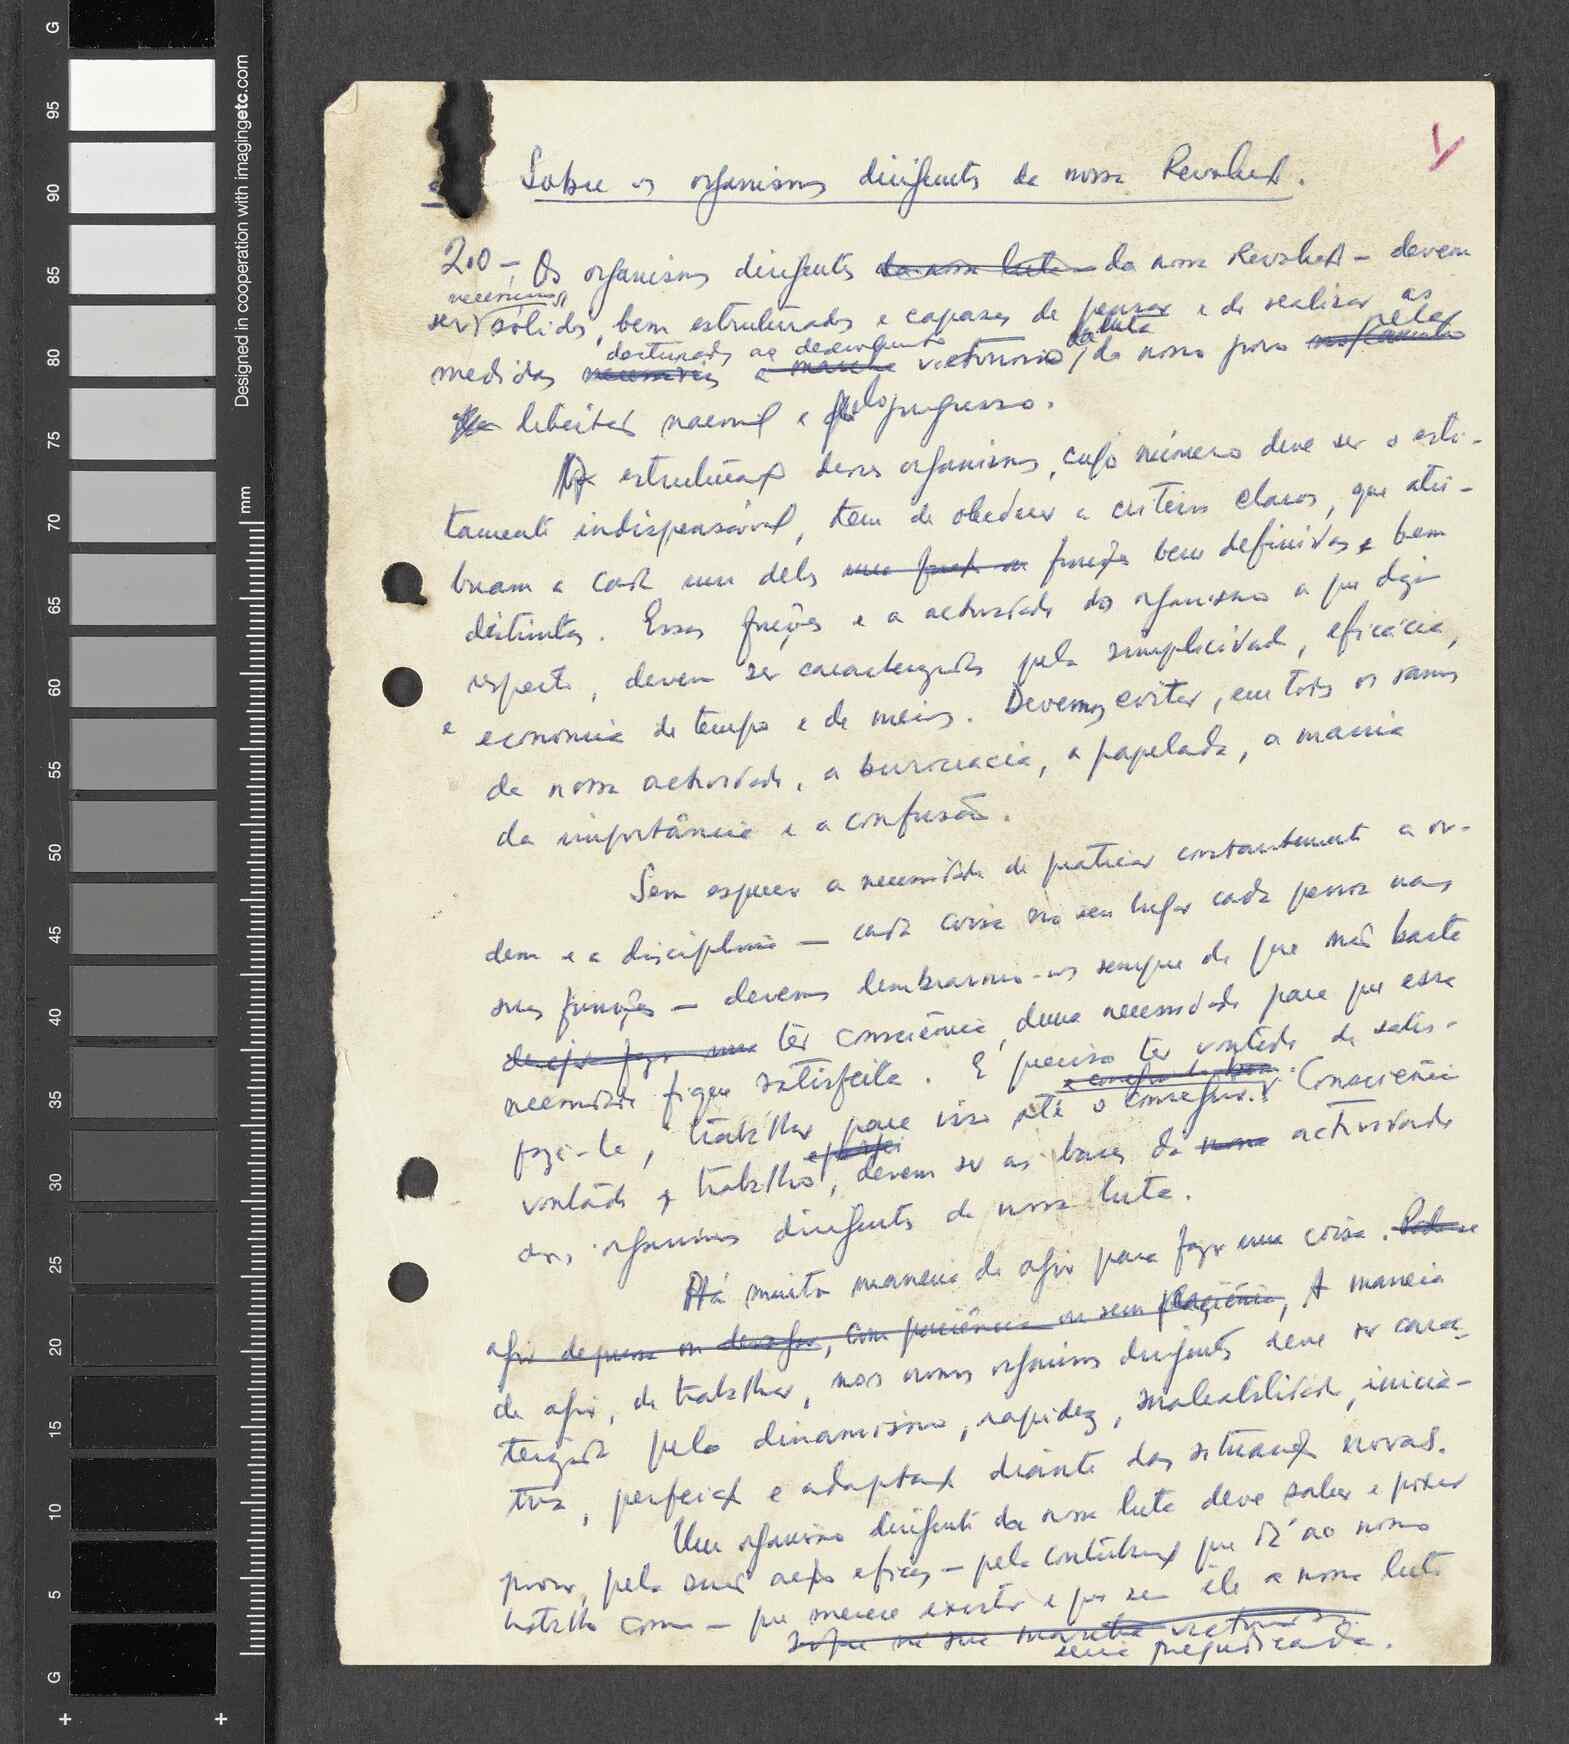 Sobre os organismos dirigentes da nossa Revolução.
2.0 – Os organismos dirigentes da nossa luta da nossa Revolução – devem
necessários
ser sólidos, bem estruturados e capazes de pensar e de realizar as
destinadas ao desenvolvimento da luta pela
medidas necessárias e marcha vitorioso, do nosso povo
libertação nacional e pelo progresso.
A estruturação desses organismos, cujo número deve ser o estri-
tamente indispensável, tem de obedecer a critérios claros, que atri-
buam a cada um deles uma função ou funções bem definidas e bem
distintas. Essas funções e a actividade do organismo a que diz
respeito, devem ser caracterizadas pela simplicidade, eficácia,
e economia de tempo e de meios. Devemos evitar, em todos os ramos
da nossa actividade, a burocracia, a papelada, a mania
da importância e a confusão.
Sem esquecer a necessidade de praticar constantemente a or-
dem e a disciplina – cada coisa no seu lugar cada pessoa nas
suas funções – devemos lembrarmo-nos sempre de que não basta
ter consciência duma necessidade para que essa
necessidade fique satisfeita. É preciso ter vontade de satis-
fazê-la, trabalhar para isso até o conseguir. Consciência
vontade e trabalho, devem ser as bases da nossa actividade
dos organismos dirigentes da nossa luta.
Há muita maneira de agir para fazer uma coisa. Pode-se
agir depressa ou devagar, com paciência ou sem paciência, A maneira
de agir, de trabalhar, nos nossos organismos dirigentes deve ser carac-
terizada pelo dinamismo, rapidez, maleabilidade, inicia-
tiva, perfeição e adaptação diante das situações novas.
Um organismo dirigente da nossa luta deve saber e poder
provar, pela sua acção eficaz – pela contribuição que dá ao nosso
trabalho comum – que merece existir e que sem ele a nossa luta
na sua marcha vitoriosa
seria prejudicada.
designed in cooperation with imagingetc.com
mm
G 95 90 85 80 75 70 65 60 55 50 45 40 35 30 25 20 15 10 5 G